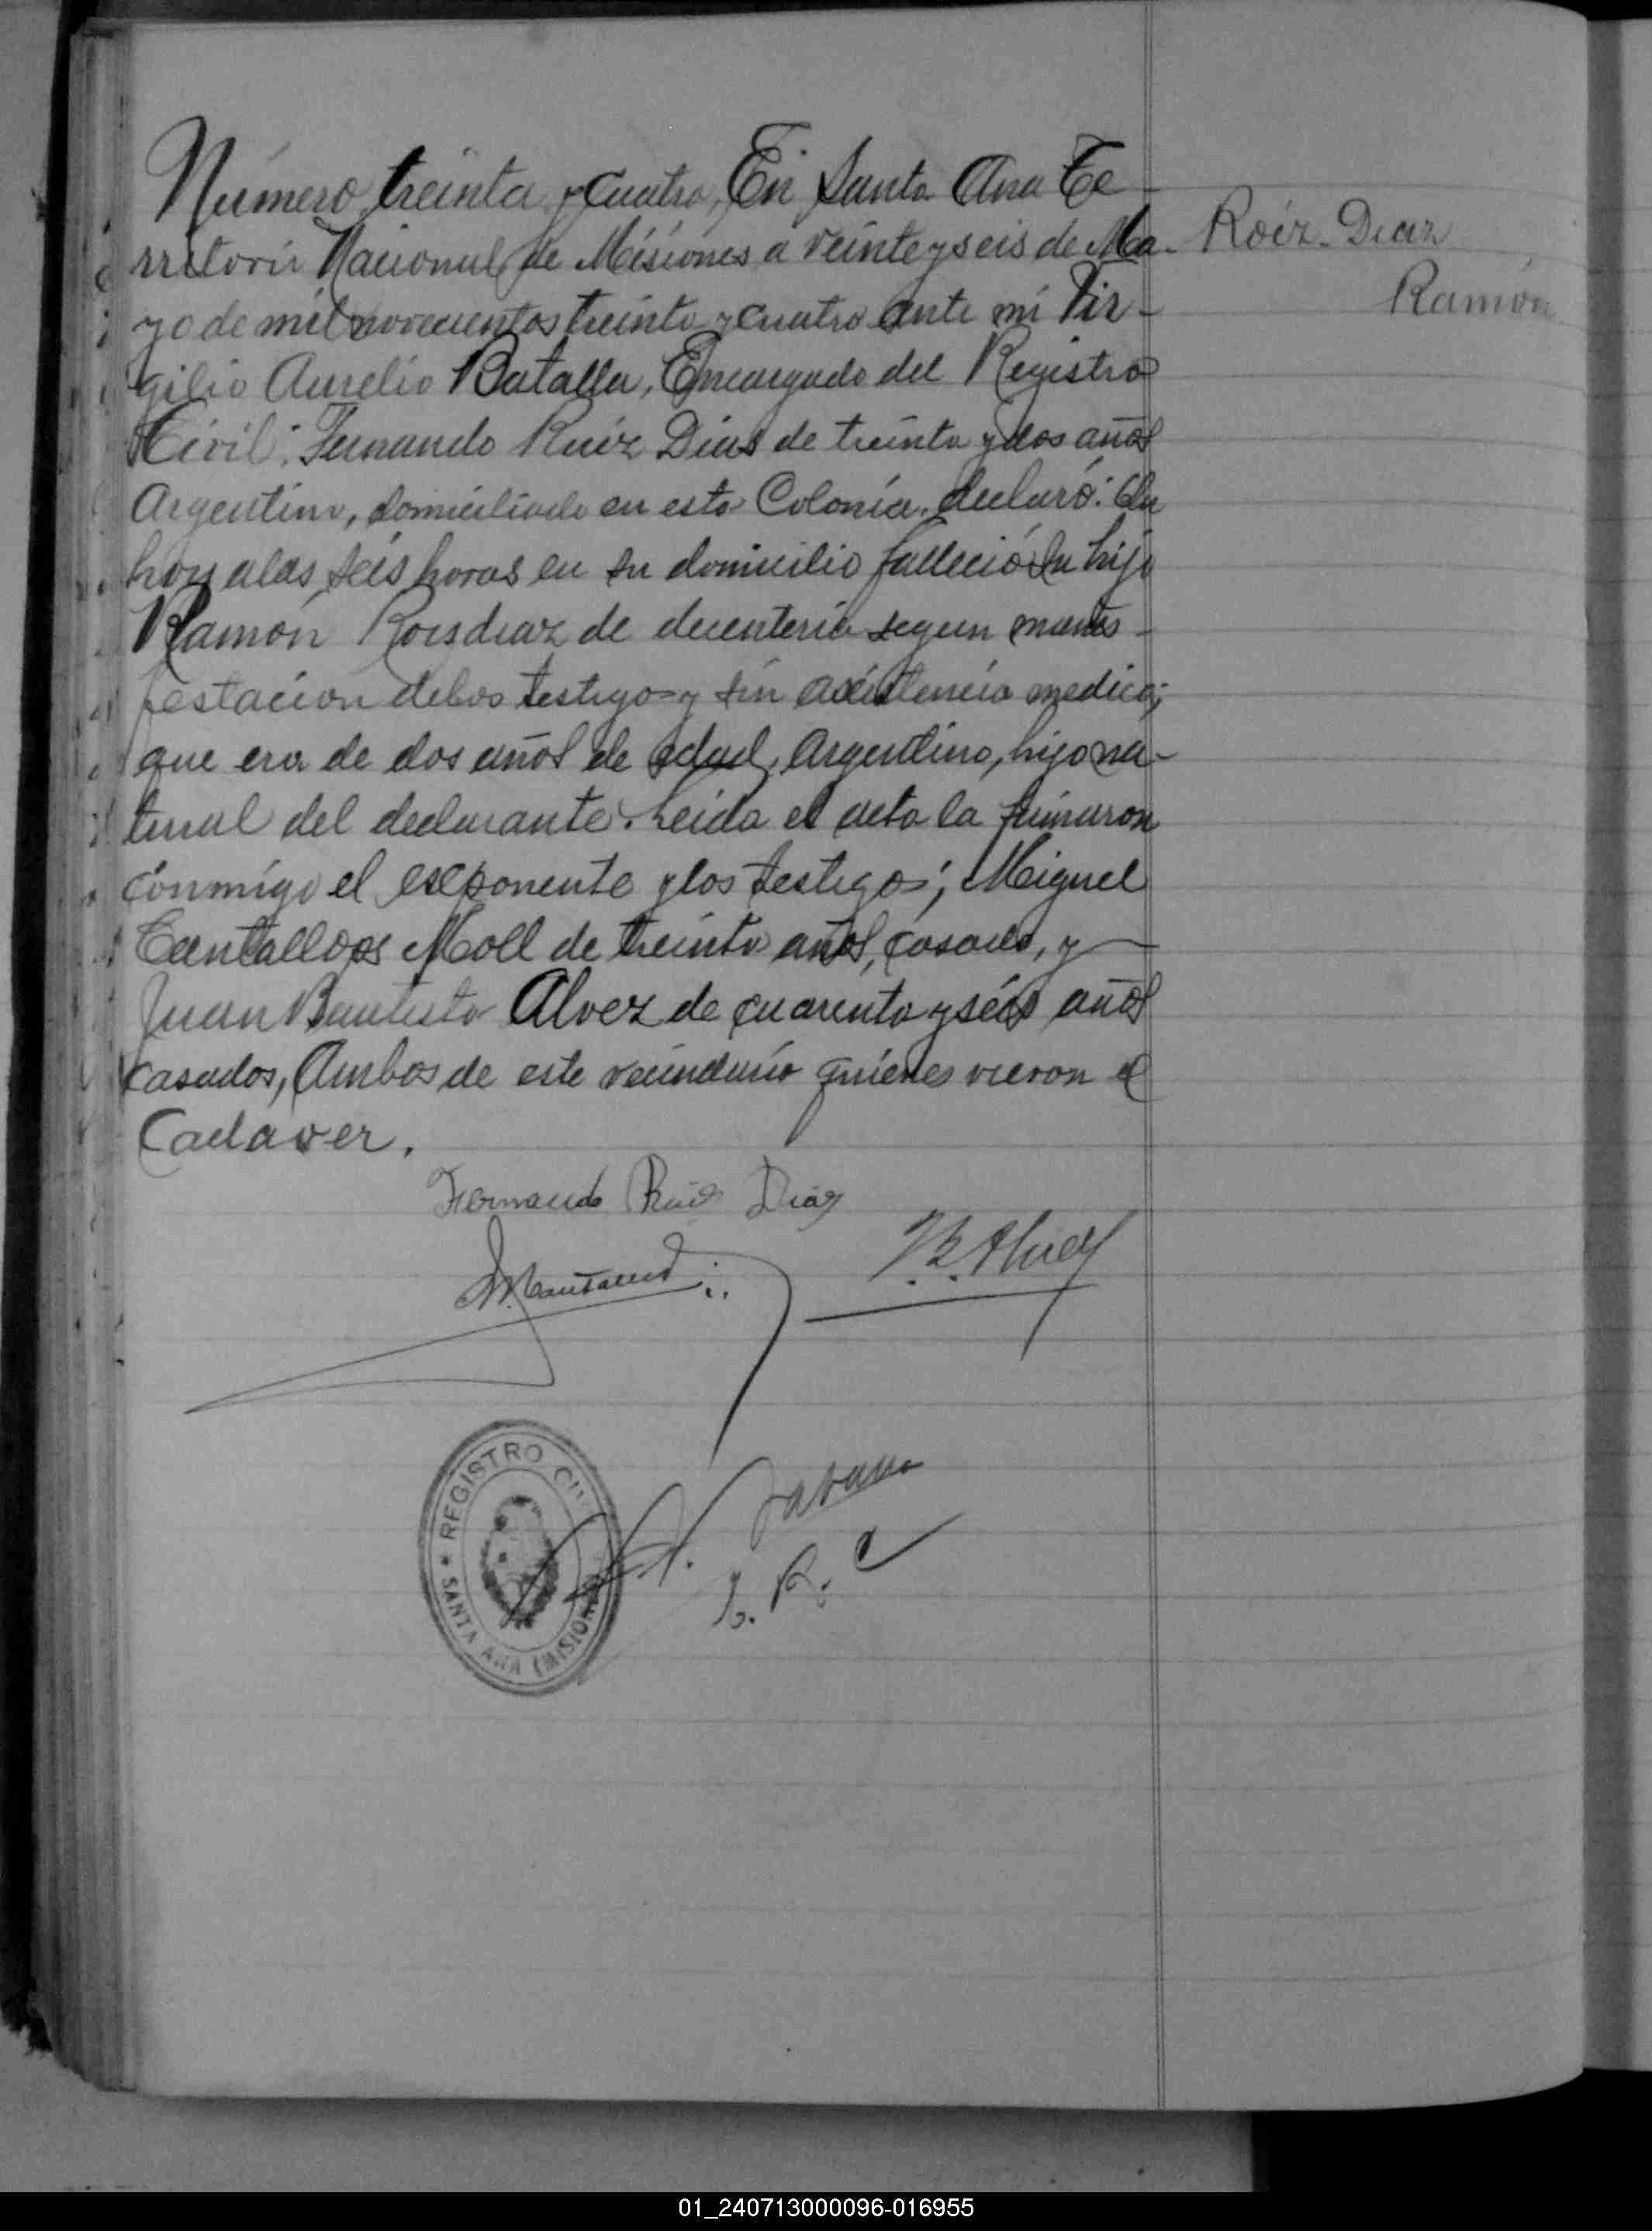 Número treinta y cuatro, En Santa Ana Te-
rritorio Nacional de Misiones a veinte y seis de Ma-
yo de mil novecientos treinta y cuatro ante mi Vir-
gilio Aurelio Batalla, Encargado del Registro
Civil: Fernando Ruiz Dias de treinta y dos años
Argentino, domiciliado en esta Colonia, declaró: Que
hoy a las seis horas en su domicilio falleció su hijo
Ramón Roisdiaz de decenteria segun manis-
festacion de los testigos y sin asistencia medica;
que era de dos años de edad, Argentino, hijo na-
tural del declarante. Leida el acta la firmaron
conmigo el exponente y los testigos; Miguel
Cantallops Moll de treinta años, casado, y
Juan Bautista Alvez de cuarenta y séis años
casados, Ambos de este vecindario quiénes vieron el
Cadaver.
Roiz-Diaz
Ramón
Fernando Ruis Diaz
REGISTRO CIVIL
SANTA ANA (MISIONES)
01_240713000096-016955